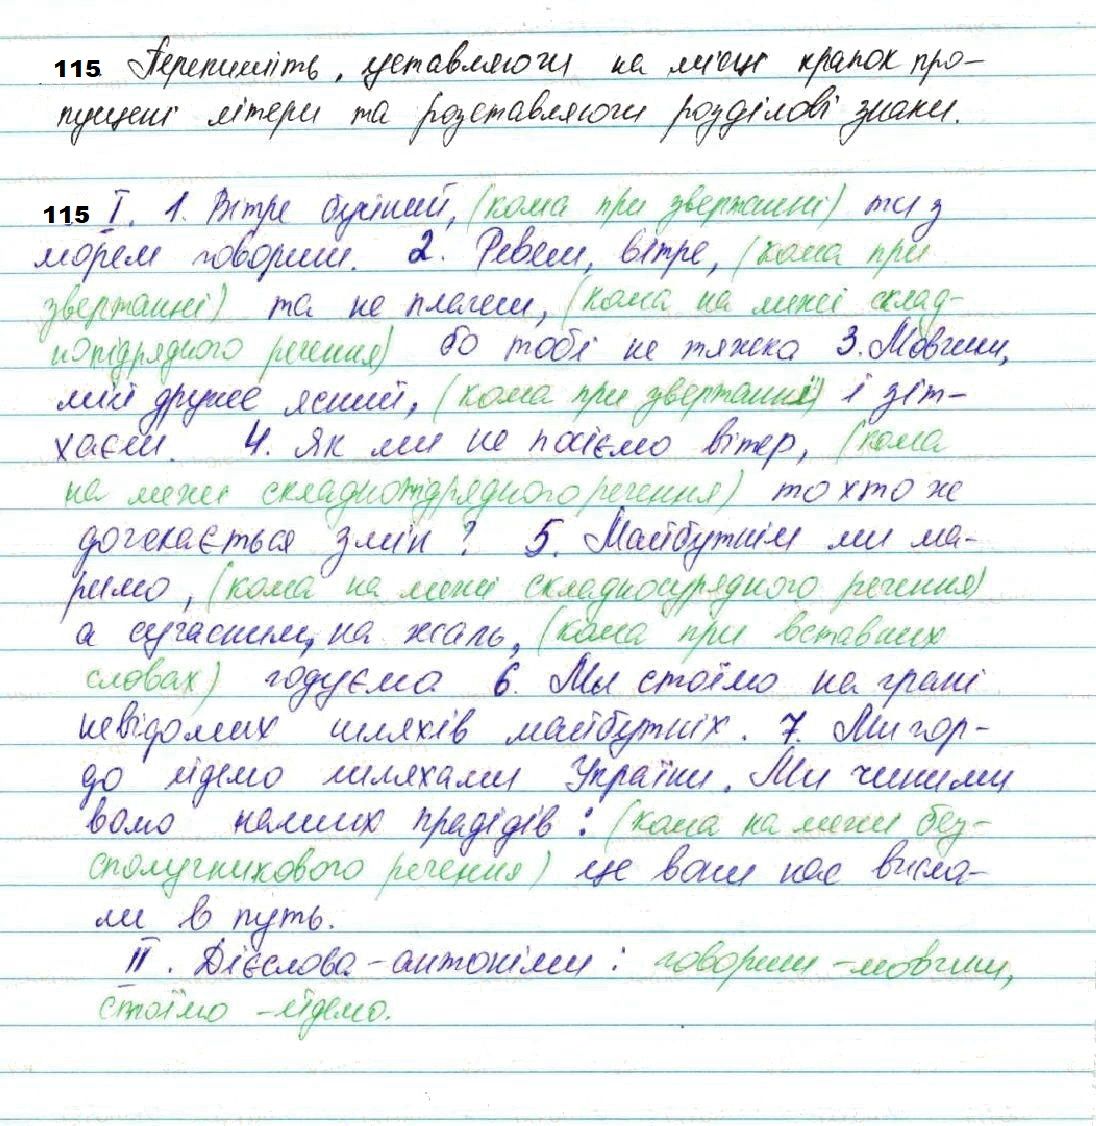 115 Перепишіть, уставляючи на місці крапок про-
пущені літери та розставляючи розділові знаки.
115 І. 1. Вітре буйний, (кома при звертанні) ти з
морем говориш. 2. Ревеш, вітре, (кома при
звертанні) та не плачеш, (кома на межі склад-
нопідрядного речення) бо тобі не тяжко 3. Мовчиш,
мій друже ясний, (кома при звертанні) і зіт-
хаєш. 4. Як ми не посіємо вітер, (кома
на межі складнопідрядного речення) то хто ж
дочекається змін? 5. Майбутнім ми ма-
римо, (кома на межі складносурядного речення)
а сучасним, на жаль, (кома при вставних
словах) годуємо 6. Ми стоїмо на грані
невідомих шляхів майбутніх. 7. Ми гор-
до йдемо шляхами України. Ми чинимо
волю наших прадідів: (кома на межі без-
сполучникового речення) це вони нас висла-
ли в путь.
ІІ. Дієслова-антоніми: говориш - мовчиш,
стоїмо - йдемо.